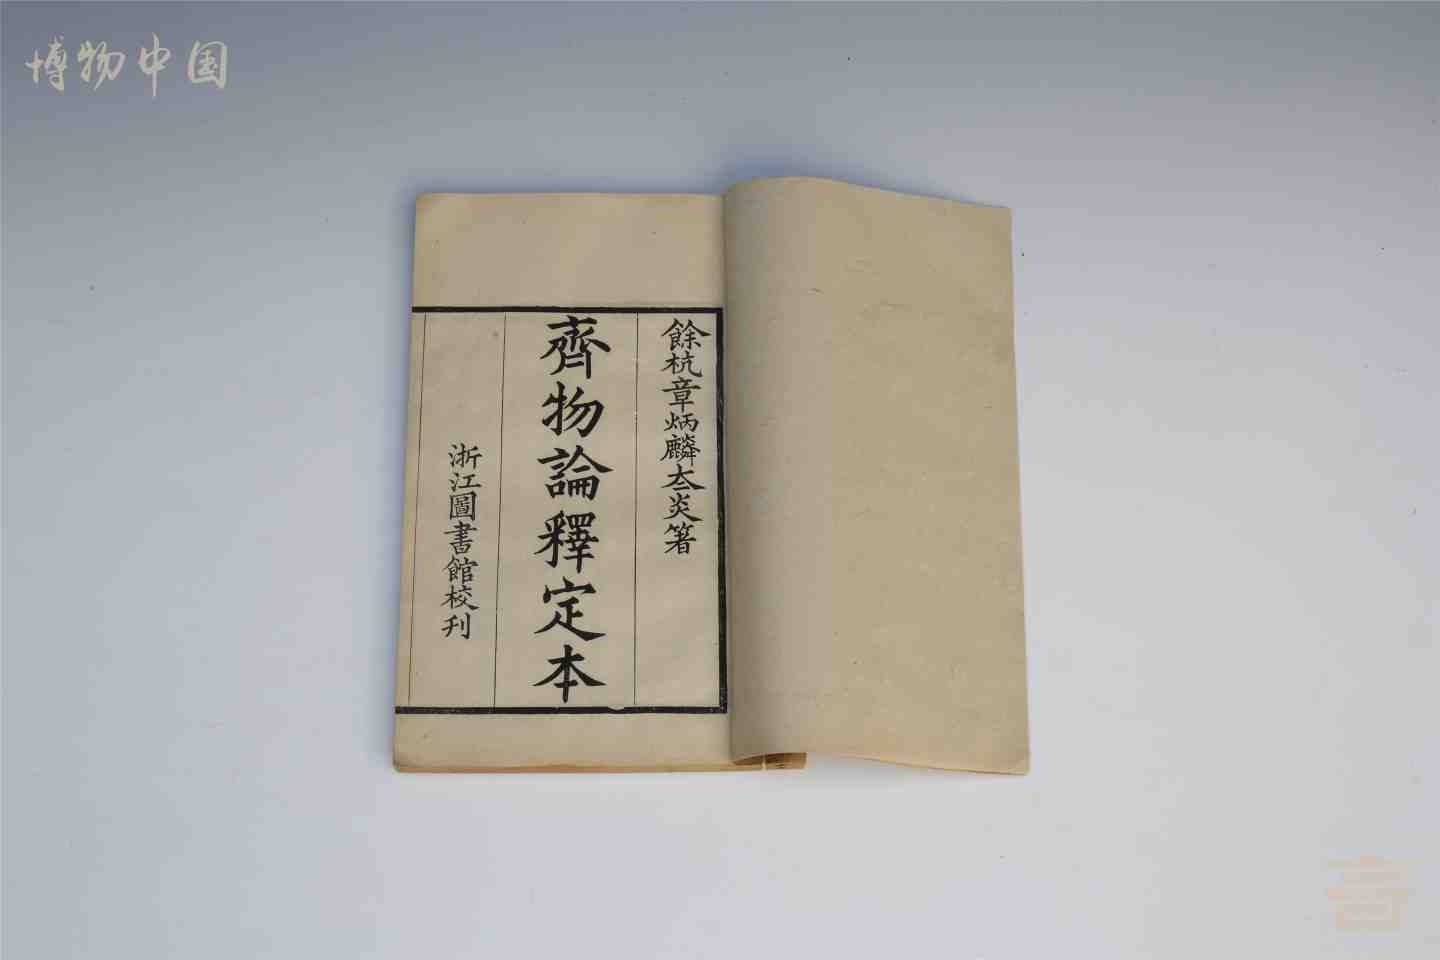 博物中国
餘杭章炳麟太炎箸
齊物論釋定本
浙江圖書館校刊